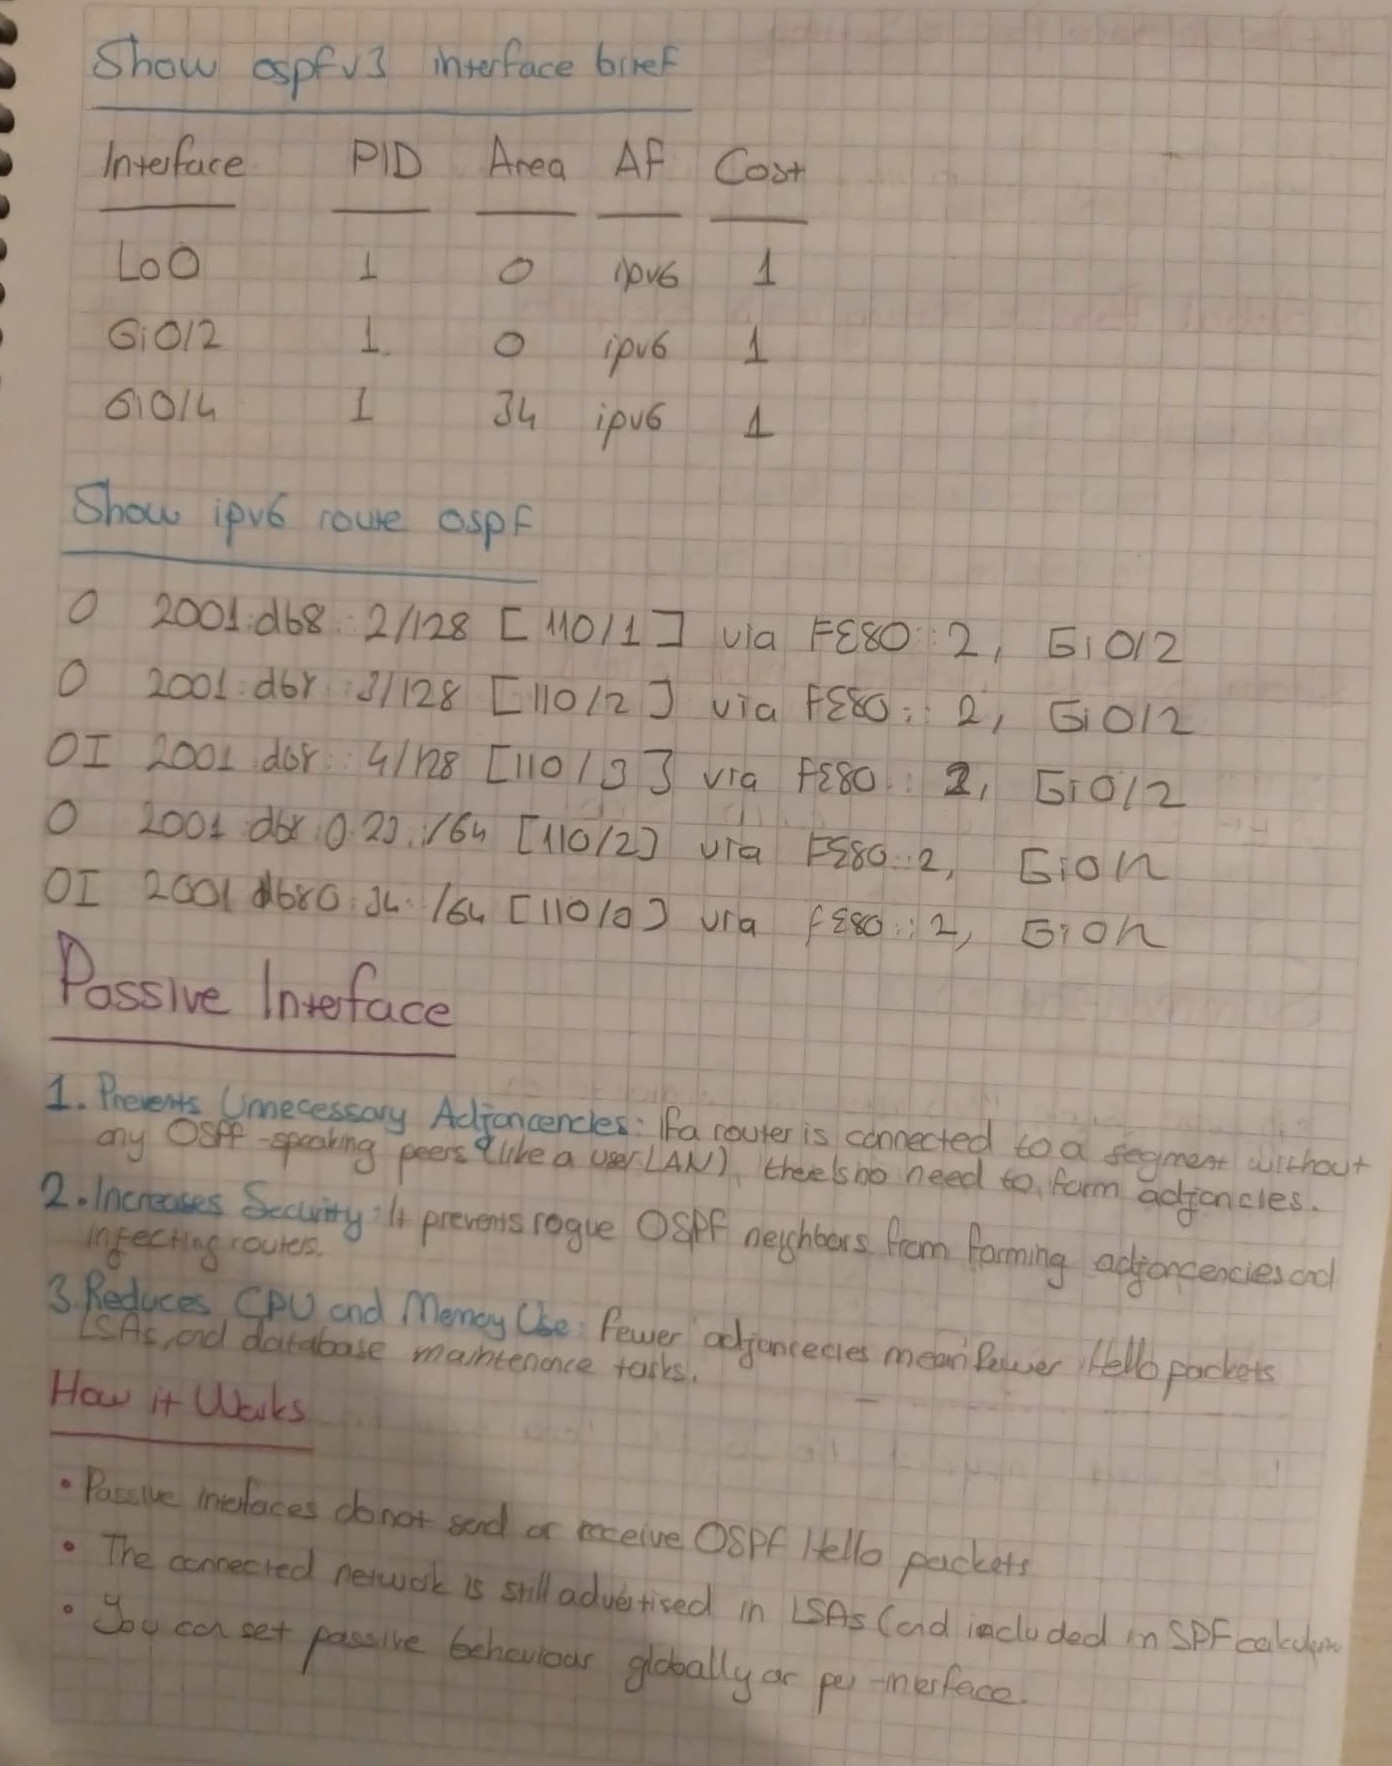 Show ospfv3 interface brief
Interface PID Area AF Cost
Lo0 1 0 ipv6 1
Gi0/2 1 0 ipv6 1
Gi0/4 1 34 ipv6 1
Show ipv6 route ospf
O 2001:db8::2/128 [110/1] via FE80::2, Gi0/2
O 2001:db8::3/128 [110/2] via FE80::2, Gi0/2
OI 2001:db8::4/128 [110/3] via FE80::2, Gi0/2
O 2001:db8:0:23::/64 [110/2] via FE80::2, Gi0/2
OI 2001:db8:0:34::/64 [110/3] via FE80::2, Gi0/2
Passive Interface
1. Prevents Unnecessary Adjancencies: If a router is connected to a segment without
any OSPF-speaking peers (like a user LAN), there's no need to form adjancies.
2. Increases Security: It prevents rogue OSPF neighbors from forming adjancencies and
infecting routers.
3. Reduces CPU and Memory Use: Fewer adjancecies mean fewer Hello packets
LSAs, and database maintenance tasks.
How it Works
• Passive interfaces do not send or receive OSPF Hello packets
• The connected network is still advertised in LSAs (and included in SPF
• You can set passive behaviour globally or per-interface.